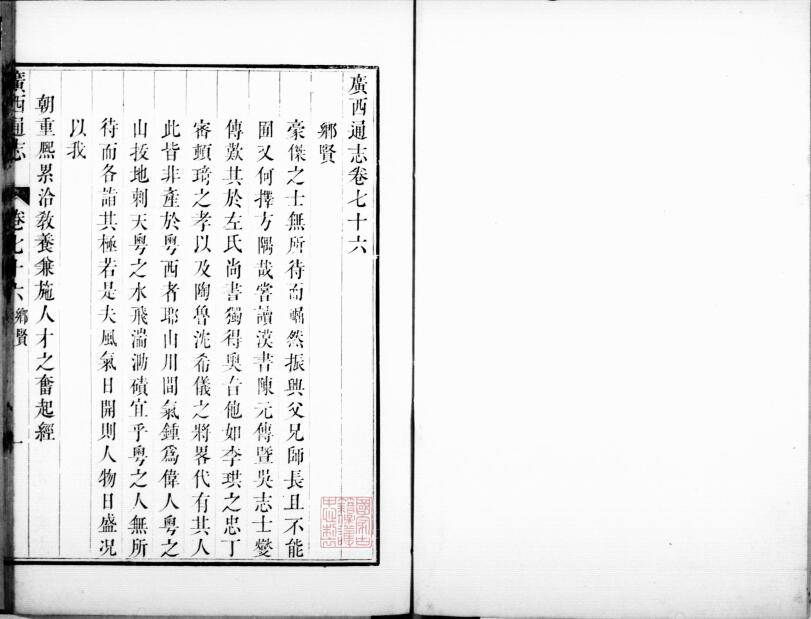 廣西通志卷七十六
鄉賢
豪傑之士無所待而崛然振興父兄師長且不能
囿又何擇方隅哉嘗讀漢書陳元傳暨吳志士燮
傳歎其於左氏尚書獨得奥旨他如李珙之忠丁
審頓琦之孝以及陶魯沈希儀之將畧代有其人
此皆非產於粵西者耶山川間氣鍾爲偉人粵之
山拔地刺天粵之水飛湍泐磧宜乎粵之人無所
待而各詣其極若是夫風氣日開則人物日盛况
以我
朝重熈累洽敎養兼施人才之奮起經
廣西通志
卷七十六
鄉賢
一